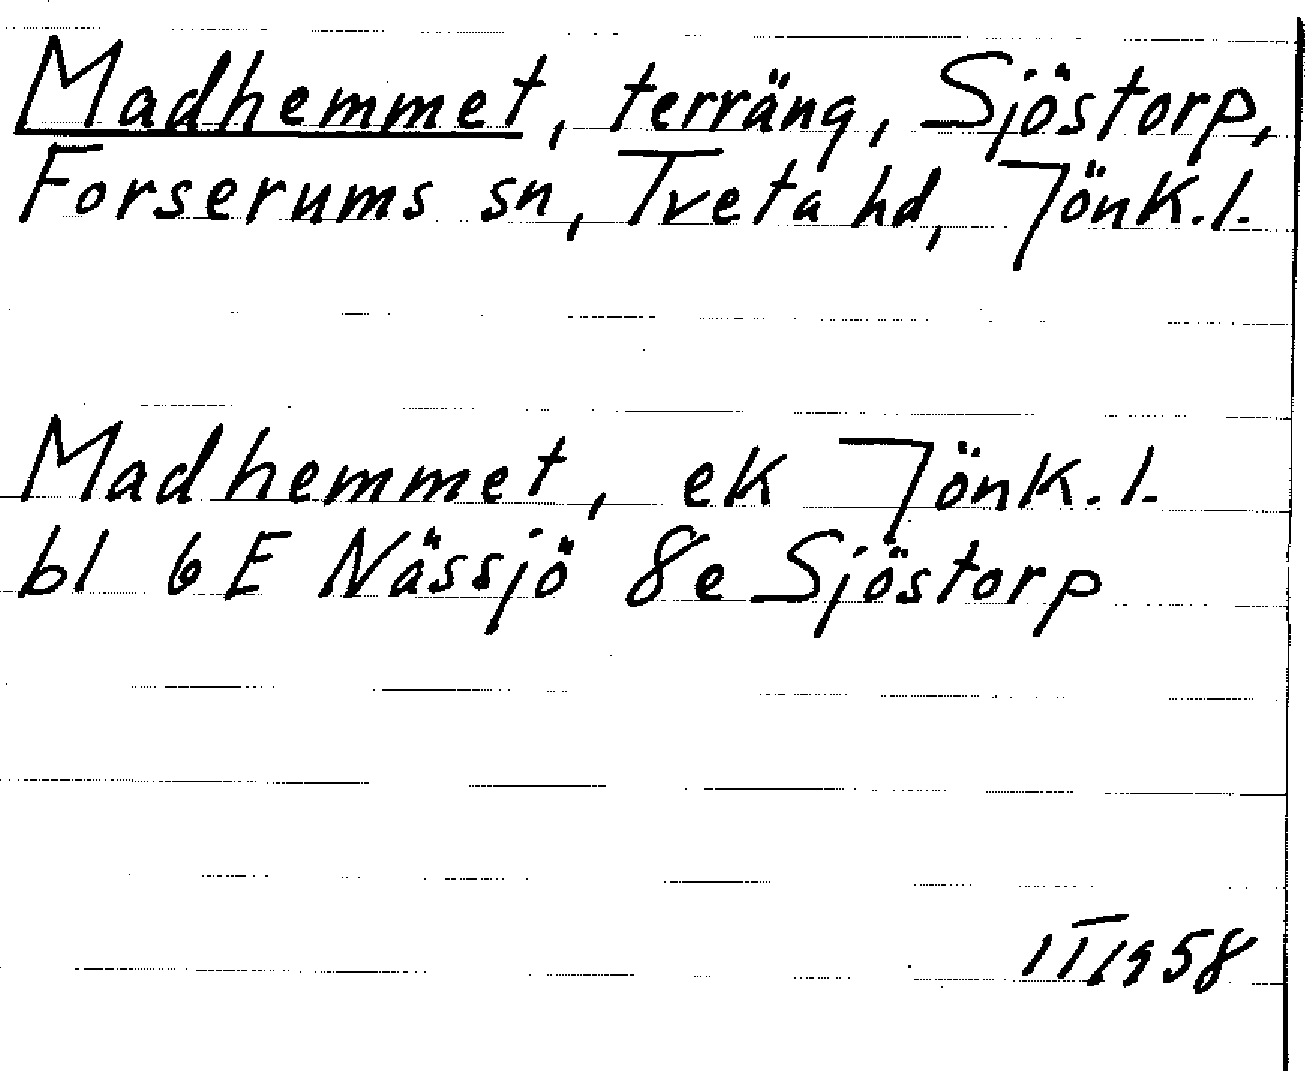 Madhemmet, terräng, Sjöstorp,
Forserums sn, Tveta hd, Jönk.l.
Madhemmet, ek Jönk.l.
bl 6E Nässjö 8e Sjöstorp
1T1958